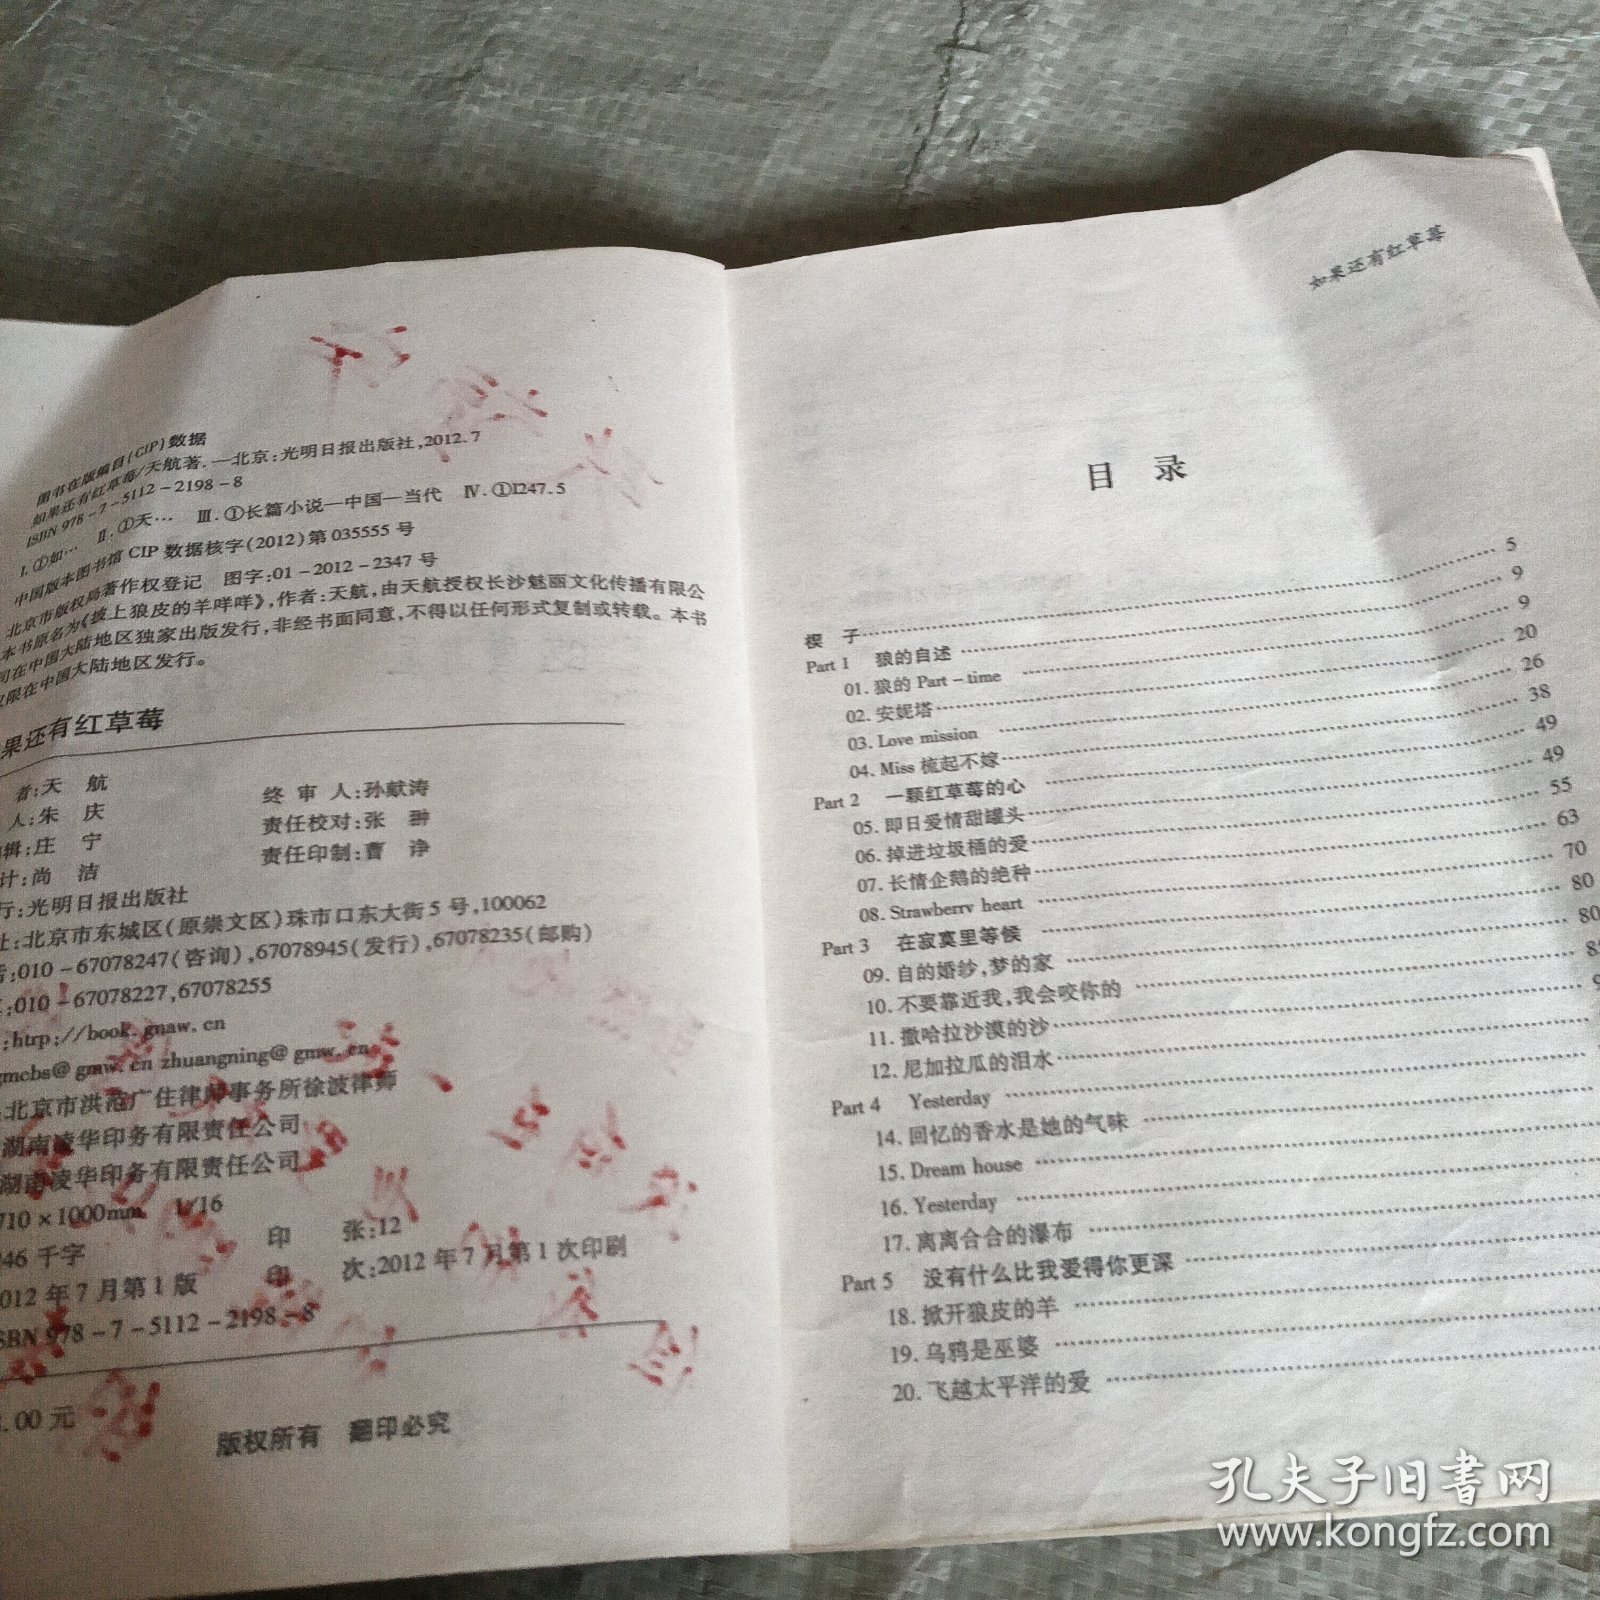 图书在版编目(CIP)数据
如果还有红草莓/天航著.—北京:光明日报出版社,2012.7
ISBN 978-7-5112-2198-8
Ⅰ.①如… Ⅱ.①天… Ⅲ.①长篇小说—中国—当代 Ⅳ.①I247.5
中国版本图书馆 CIP 数据核字(2012)第 035555 号
北京市版权局著作权登记 图字:01-2012-2347 号
本书原名为《披上狼皮的羊咩咩》,作者:天航,由天航授权长沙魅丽文化传播有限公
司在中国大陆地区独家出版发行,非经书面同意,不得以任何形式复制或转载。本书
权限在中国大陆地区发行。
果还有红草莓
者:天 航
人:朱 庆 终 审 人:孙献涛
辑:庄 宁 责任校对:张 翀
计:尚 洁 责任印制:曹 诤
行:光明日报出版社
址:北京市东城区(原崇文区)珠市口东大街5号,100062
话:010-67078247(咨询),67078945(发行),67078235(邮购)
:010-67078227,67078255
:htrp://book.gnaw.cn
gmcbs@gmw.cn zhuangning@gmw.cn
:北京市洪范广住律师事务所徐波律师
湖南凌华印务有限责任公司
湖南凌华印务有限责任公司
710×1000mm 1/16
46 千字 印 张:12
012 年 7 月第 1 版 印 次:2012 年 7 月第 1 次印刷
SBN 978-7-5112-2198-8
.00 元
版权所有 翻印必究
如果还有红草莓
目 录
楔 子 5
Part 1 狼的自述 9
01.狼的 Part-time 9
02.安妮塔 20
03.Love mission 26
04.Miss 梳起不嫁 38
Part 2 一颗红草莓的心 49
05.即日爱情甜罐头 49
06.掉进垃圾桶的爱 55
07.长情企鹅的绝种 63
08.Strawberry heart 70
Part 3 在寂寞里等候 80
09.自的婚纱,梦的家 80
10.不要靠近我,我会咬你的
11.撒哈拉沙漠的沙
12.尼加拉瓜的泪水
Part 4 Yesterday
14.回忆的香水是她的气味
15.Dream house
16.Yesterday
17.离离合合的瀑布
Part 5 没有什么比我爱得你更深
18.掀开狼皮的羊
19.乌鸦是巫婆
20.飞越太平洋的爱
孔夫子旧书网
www.kongfz.com